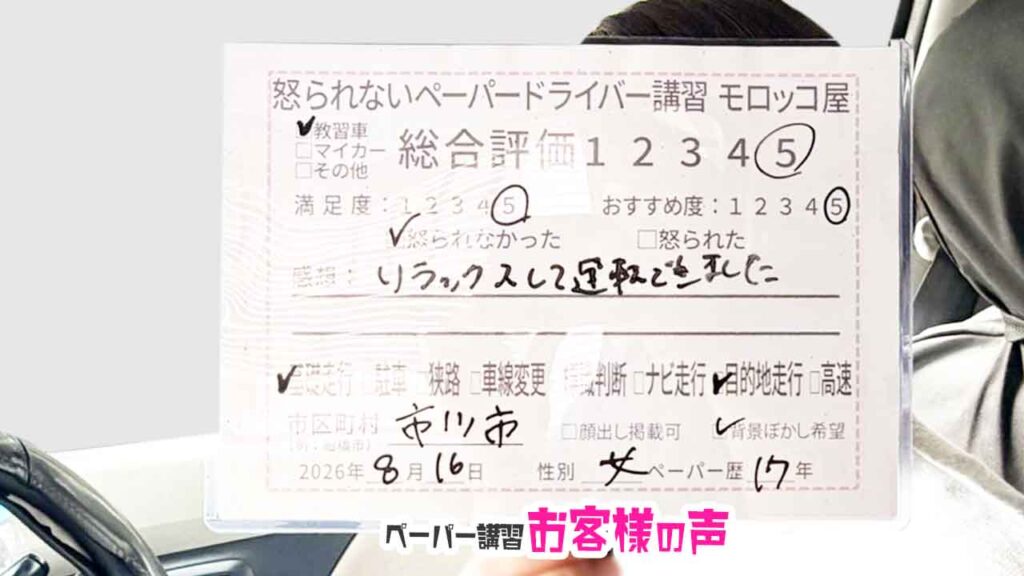 怒られないペーパードライバー講習 モロッコ屋
✓教習車
□マイカー
□その他
総合評価 1 2 3 4 5
満足度：1 2 3 4 5 おすすめ度：1 2 3 4 5
✓怒られなかった □怒られた
感想：リラックスして運転できました
✓基礎走行 □駐車 □狭路 □車線変更 □危険判断 □ナビ走行 ✓目的地走行 □高速
市区町村 市川市 □顔出し掲載可 ✓背景ぼかし希望
(例：船橋市)
2026年 8月 16日 性別 女 ペーパー歴 17年
ペーパー講習お客様の声